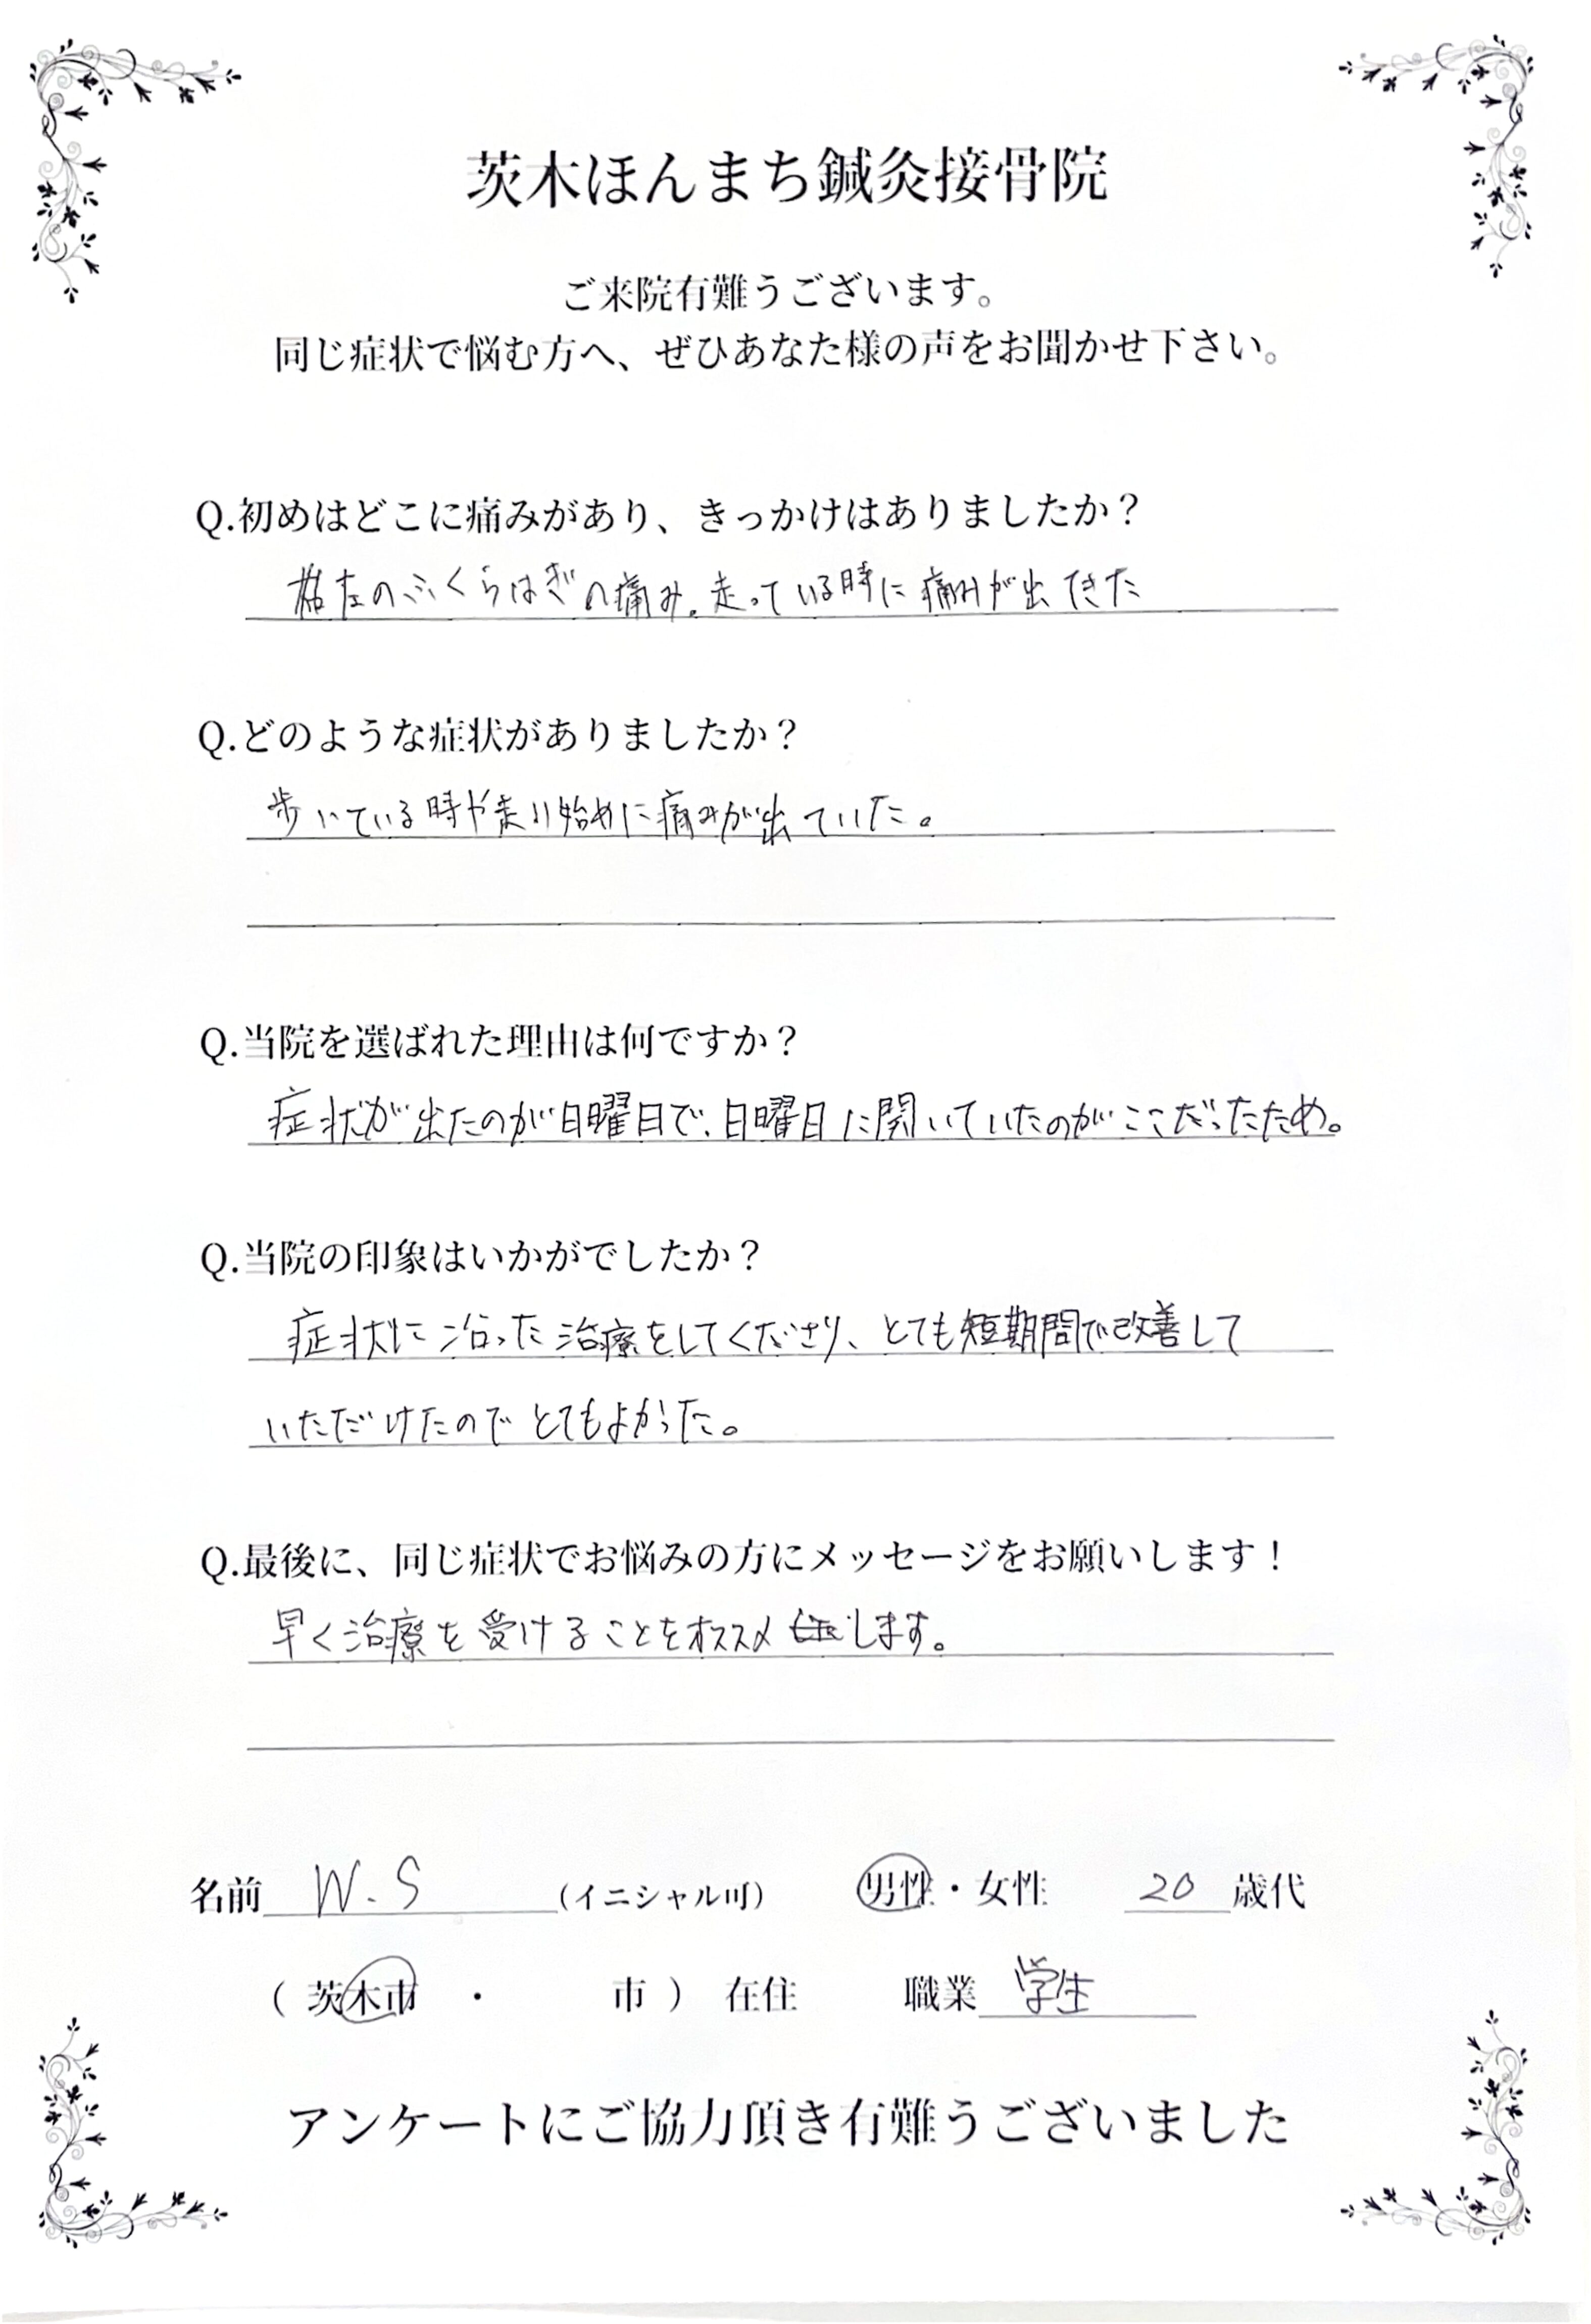 茨木ほんまち鍼灸接骨院
ご来院有難うございます。
同じ症状で悩む方へ、ぜひあなた様の声をお聞かせ下さい。
Q.初めはどこに痛みがあり、きっかけはありましたか？
左のふくらはぎの痛み。走っている時に痛みが出てきた
Q.どのような症状がありましたか？
歩いている時や走り始めに痛みが出ていた。
Q.当院を選ばれた理由は何ですか？
症状が出たのが日曜日で、日曜日に開いていたのがここだったため。
Q.当院の印象はいかがでしたか？
症状に沿った治療をしてくださり、とても短期間で改善して
いただけたのでとてもよかった。
Q.最後に、同じ症状でお悩みの方にメッセージをお願いします！
早く治療を受けることをオススメします。
名前 W.S （イニシャル可） 男性・女性 20 歳代
（ 茨木市 ・ 市 ） 在住 職業 学生
アンケートにご協力頂き有難うございました